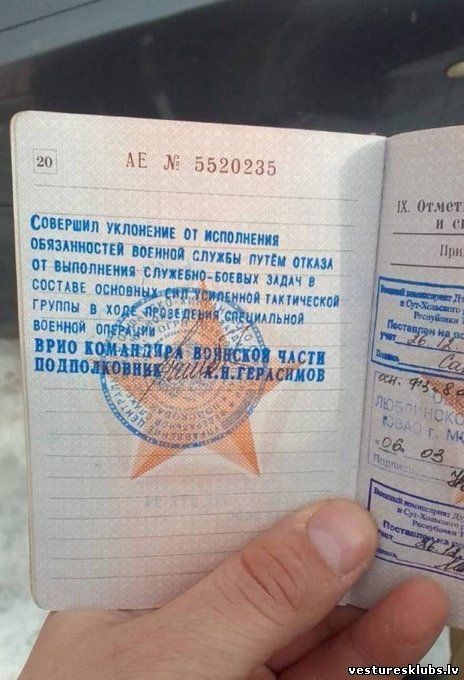 20
АЕ № 5520235
СОВЕРШИЛ УКЛОНЕНИЕ ОТ ИСПОЛНЕНИЯ
ОБЯЗАННОСТЕЙ ВОЕННОЙ СЛУЖБЫ ПУТЁМ ОТКАЗА
ОТ ВЫПОЛНЕНИЯ СЛУЖЕБНО-БОЕВЫХ ЗАДАЧ В
СОСТАВЕ ОСНОВНЫХ СИЛ УСИЛЕННОЙ ТАКТИЧЕСКОЙ
ГРУППЫ В ХОДЕ ПРОВЕДЕНИЯ СПЕЦИАЛЬНОЙ
ВОЕННОЙ ОПЕРАЦИИ
ВРИО КОМАНДИРА ВОИНСКОЙ ЧАСТИ
ПОДПОЛКОВНИК ГЕРАСИМОВ
IX. Отмет
и с
При
Военный комиссариат Дз
в Сут-Хольского
Республики
Поставлен на
учет 26.12
ЛЮБЛИНСКО
ЮВАО г. М
06. 03
Подпись
Военный комиссариат Дз
в Сут-Хольского р
Республики
Поставлен на
vesturesklubs.lv